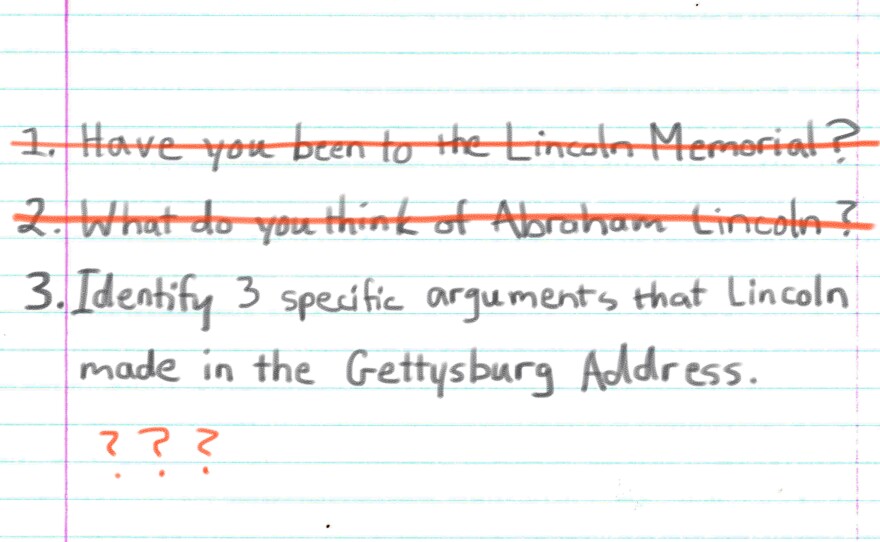 1. Have you been to the Lincoln Memorial?
2. What do you think of Abraham Lincoln?
3. Identify 3 specific arguments that Lincoln
made in the Gettysburg Address.
? ? ?